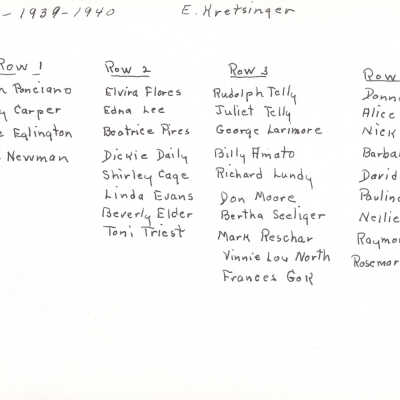 - 1939-1940 E. Kretsinger
Row 1
Ponciano
Carper
Eglington
Newman
Row 2
Elvira Flores
Edna Lee
Beatrice Pires
Dickie Daily
Shirley Cage
Linda Evans
Beverly Elder
Toni Triest
Row 3
Rudolph Telly
Juliet Telly
George Larimore
Billy Amato
Richard Lundy
Don Moore
Bertha Seeliger
Mark Reschar
Vinnie Lou North
Frances Gok
Row
Donn
Alice
Nick
Barba
David
Paulin
Nellie
Raymo
Rosemar